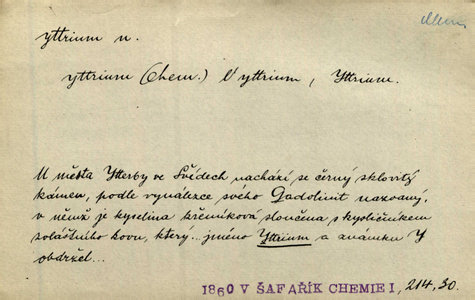 Chem.
yttrium n.
yttrium (Chem.) l'yttrium, Yttrium.
U města Ytterby ve Švédech nachází se černý sklovitý
kámen, podle vynálezce svého Gadolinit nazvaný,
v němž je kyselina křemíková sloučena s kysličníkem
zvláštního kovu, který... jméno Yttrium a známku Y
obdržel...
1860 V ŠAFAŘÍK CHEMIE I, 214, 30.